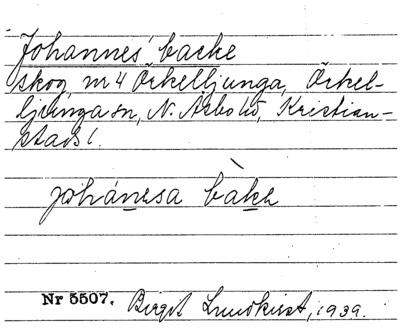 Johannes' backe
skog, nr 4 Örkelljunga, Örkel-
ljunga sn, N. Åsbo hd, Kristian-
stads l.
johánesa bàke
Nr 5507. Birgit Lundkvist, 1939.